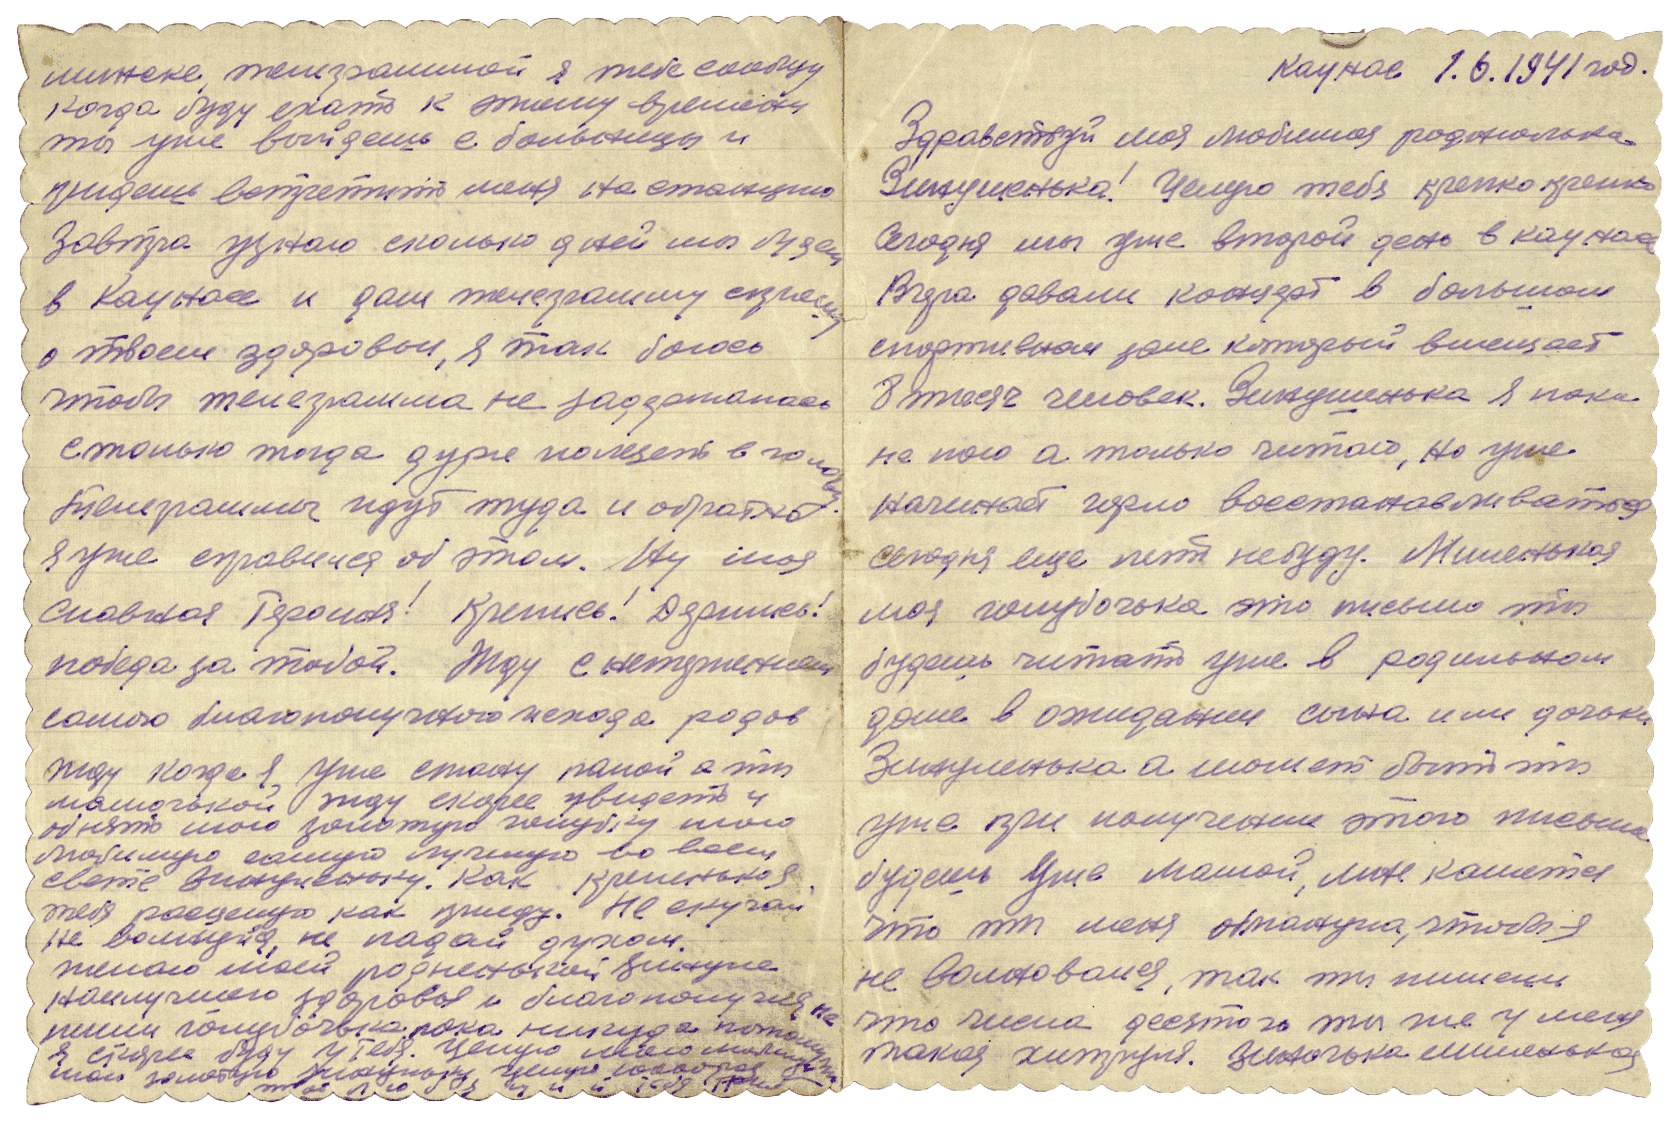 Каунас 1.6.1941 год.
Здравствуй моя любимая родножолька
Зинушенька! Целую тебя крепко крепко
Сегодня мы уже второй день в Каунасе
Вчера давали концерт в большом
спортивном зале который вмещает
8 тысяч человек. Зинушенька я пока
не пою а только читаю, но уже
начинает горло восстанавливаться
сегодня еще петь небуду. Миленькая
моя голубочька это письмо ты
будешь читать уже в родильном
доме в ожидании сына или дочьки
Зинуленька а может быть ты
уже при получении этого письма
будешь уже мамой, мне кажется
что ты меня обманула, чтобы я
не волновался, так ты пишеш
что числа десятого ты же у меня
такая хитруля. Зиночька миленькая
телеграммой я тебе сообщу
когда буду ехать к этому времени
ты уже выйдешь с больницы и
придешь встретить меня на станцию
Завтра узнаю сколько дней мы будем
в Каунасе и дам телеграмму
о твоем здоровьи, я так боюсь
чтобы телеграмма не задержалась
столько тогда дурь полезеть в голову
Телеграммы идут туда и обратно
я уже справился об этом. Ну моя
славная Героиня! Крепись! Держись!
победа за тобой. Жду с нетерпением
самого благополучного исхода родов
жду когда я уже стану папой а ты
мамочькой жду скорее увидеть и
обнять мою золотую голубку мою
любимую самую лучшую во всем
свете Зинуленьку. Как крепенькоя
тебя расцелую как приеду. Не скучай
не волнуйся, не падай духом.
желаю моей родненькой Зинуле
наилучшего здоровья и благополучия не
пиши голубочька пока никуда потому что
я скоро буду у тебя. Целую мою
мою золотую Зинульку целую
твой любящий тебя